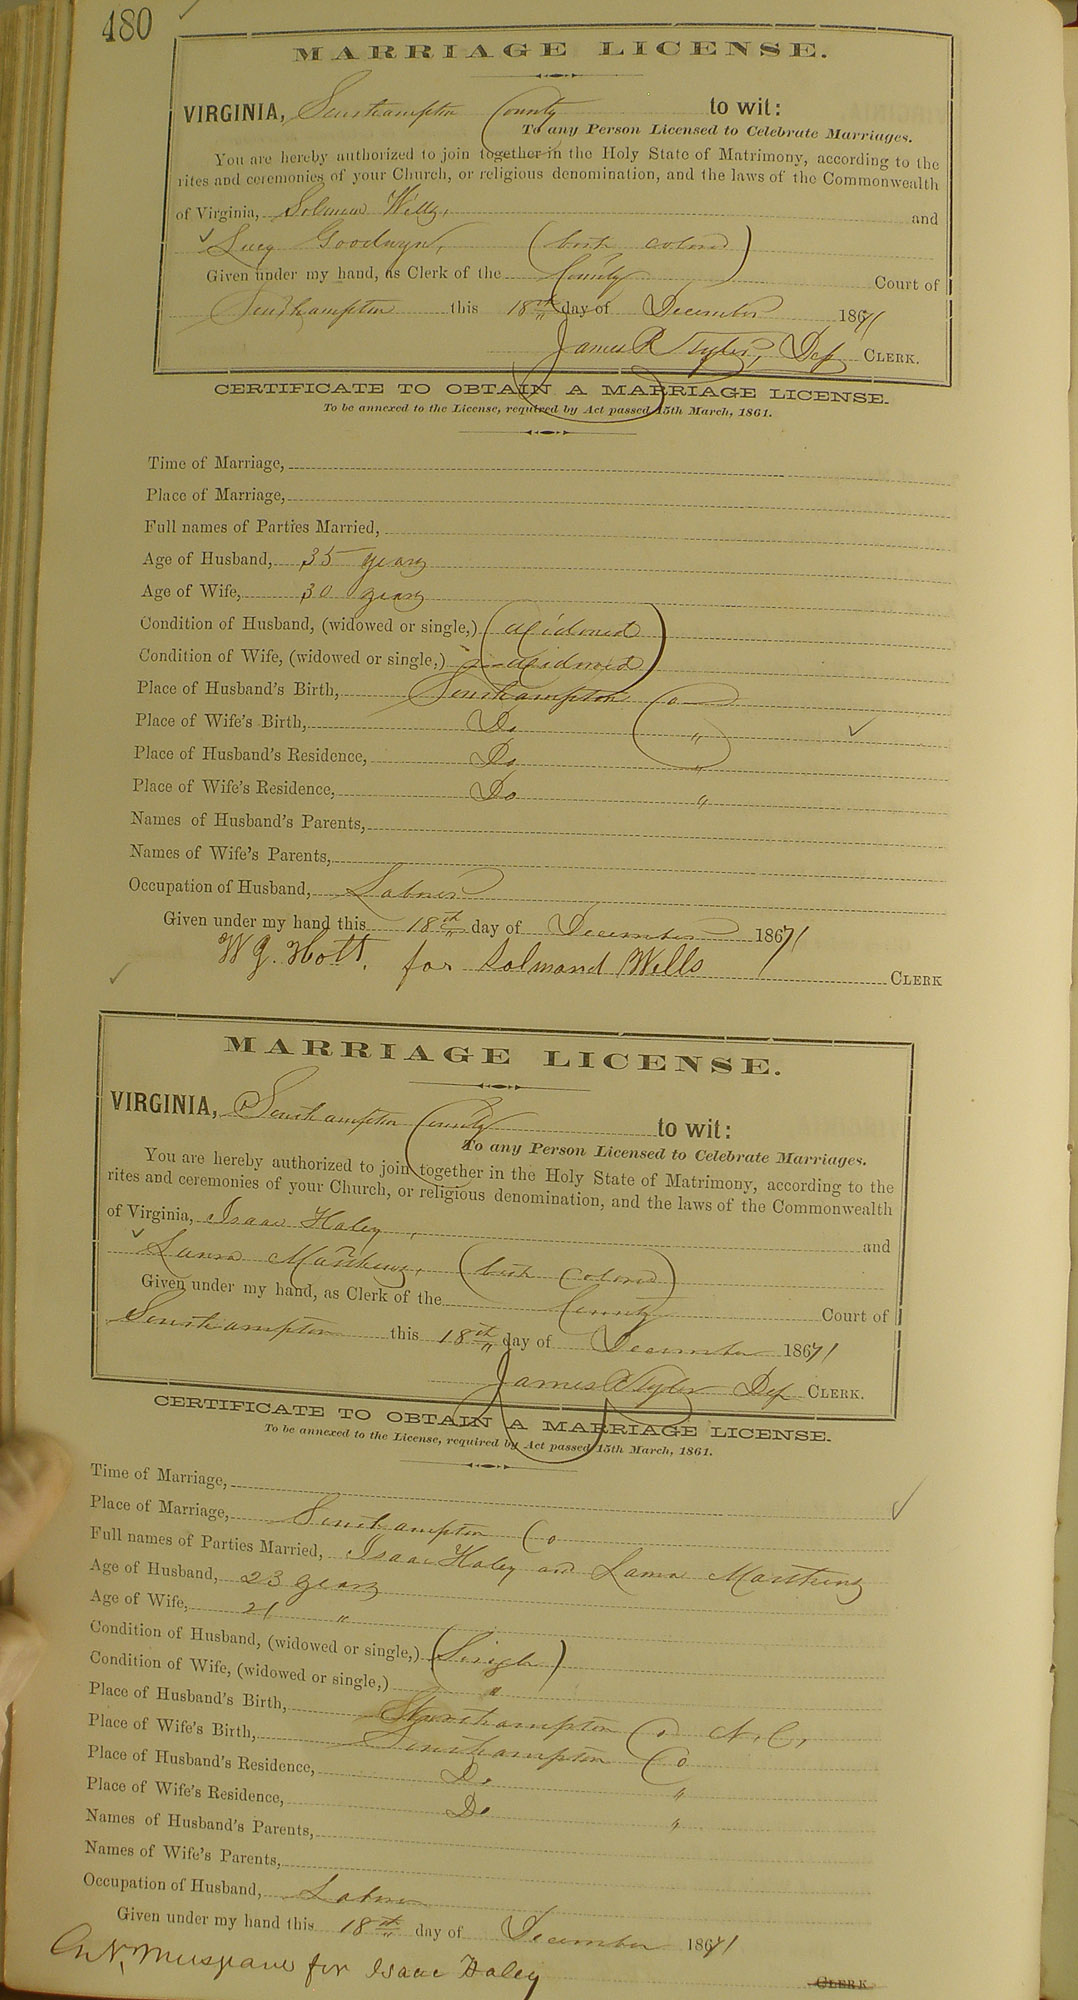 480
MARRIAGE LICENSE.
VIRGINIA, Southampton County to wit:
To any Person Licensed to Celebrate Marriages.
You are hereby authorized to join together in the Holy State of Matrimony, according to the
rites and ceremonies of your Church, or religious denomination, and the laws of the Commonwealth
of Virginia, Solmon Wells, and
Lucy Goodwyn, (both colored)
Given under my hand, as Clerk of the County Court of
Southampton this 18th day of December 1871
James R Tyler, Dep CLERK.
CERTIFICATE TO OBTAIN A MARRIAGE LICENSE.
To be annexed to the License, required by Act passed 15th March, 1861.
Time of Marriage,
Place of Marriage,
Full names of Parties Married,
Age of Husband, 35 years
Age of Wife, 30 years
Condition of Husband, (widowed or single,) (Widowed)
Condition of Wife, (widowed or single,) Widowed
Place of Husband's Birth, Southampton Co
Place of Wife's Birth, Do "
Place of Husband's Residence, Do "
Place of Wife's Residence, Do "
Names of Husband's Parents,
Names of Wife's Parents,
Occupation of Husband, Laborer
Given under my hand this 18th day of December 1871
for Solmond Wells CLERK
MARRIAGE LICENSE.
VIRGINIA, Southampton County to wit:
To any Person Licensed to Celebrate Marriages.
You are hereby authorized to join together in the Holy State of Matrimony, according to the
rites and ceremonies of your Church, or religious denomination, and the laws of the Commonwealth
of Virginia, Isaac Haley, and
Laura Matthews, (both colored)
Given under my hand, as Clerk of the County Court of
Southampton this 18th day of December 1871
James R Tyler Dep CLERK.
CERTIFICATE TO OBTAIN A MARRIAGE LICENSE.
To be annexed to the License, required by Act passed 15th March, 1861.
Time of Marriage,
Place of Marriage, Southampton Co
Full names of Parties Married, Isaac Haley and Laura Matthews
Age of Husband, 23 years
Age of Wife, 21 "
Condition of Husband, (widowed or single,) (Single)
Condition of Wife, (widowed or single,) "
Place of Husband's Birth, Northampton Co. N.C.
Place of Wife's Birth, Southampton Co
Place of Husband's Residence, Do "
Place of Wife's Residence, Do "
Names of Husband's Parents,
Names of Wife's Parents,
Occupation of Husband, Laborer
Given under my hand this 18th day of December 1871
Musgrave for Isaac Haley CLERK